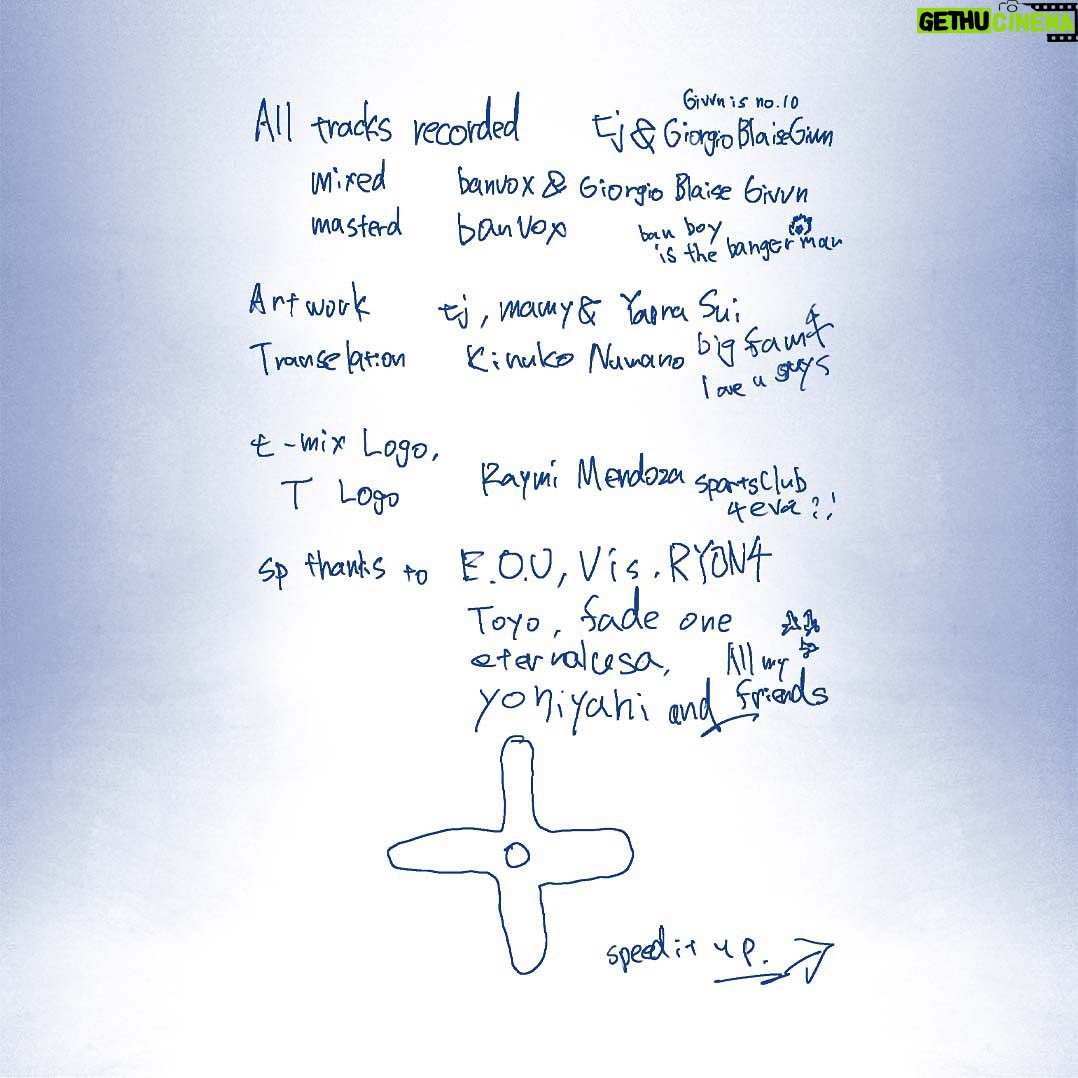 GETHUCINEMA
Givvn is no.10
All tracks recorded tj & Giorgio Blaise Givvn
mixed banvox & Giorgio Blaise Givvn
masterd banvox ban boy
is the banger man
Artwork tj, mamy & Yaura Sui
Transelation Kinuko Numano big fam
love u guys
t-mix Logo,
T Logo Raymi Mendoza sportsClub
4eva?!
sp thanks to E.O.U, Vis, RYON4
Toyo, fade one
eternalcesa, All my
yohiyahi and friends
speed it up.